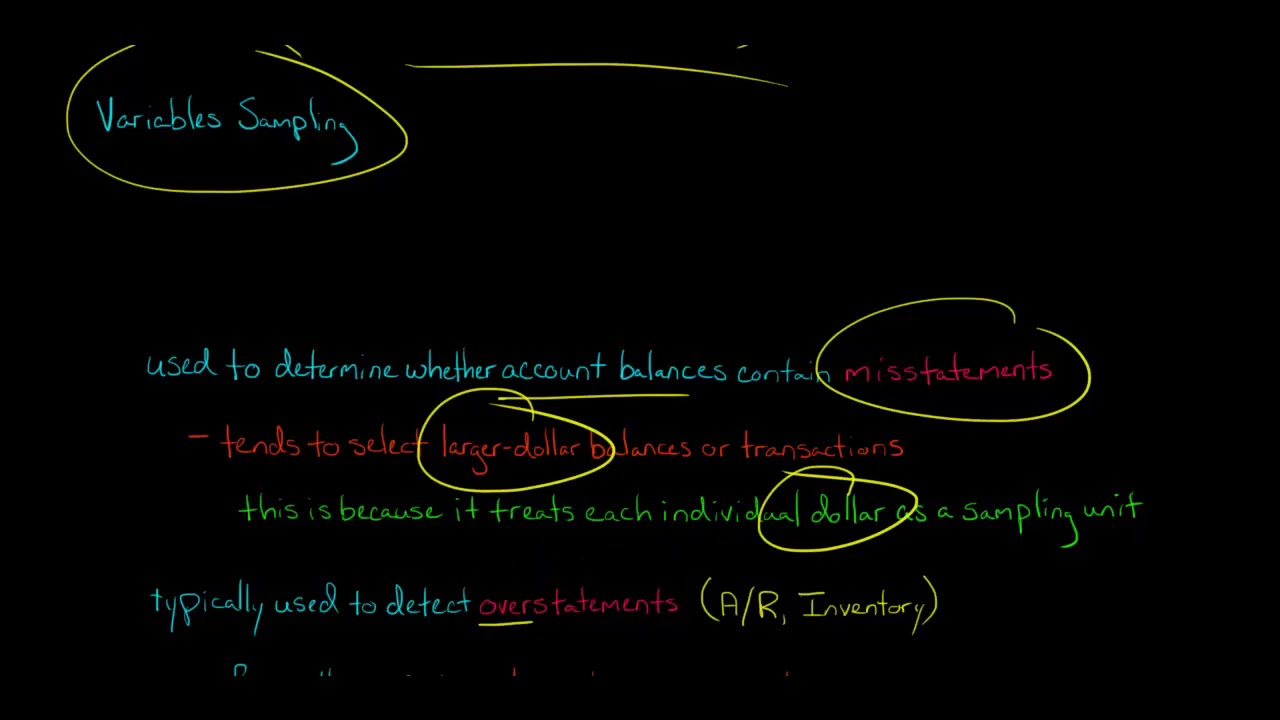 Variables Sampling
used to determine whether account balances contain misstatements
- tends to select larger-dollar balances or transactions
this is because it treats each individual dollar as a sampling unit
typically used to detect overstatements (A/R, Inventory)